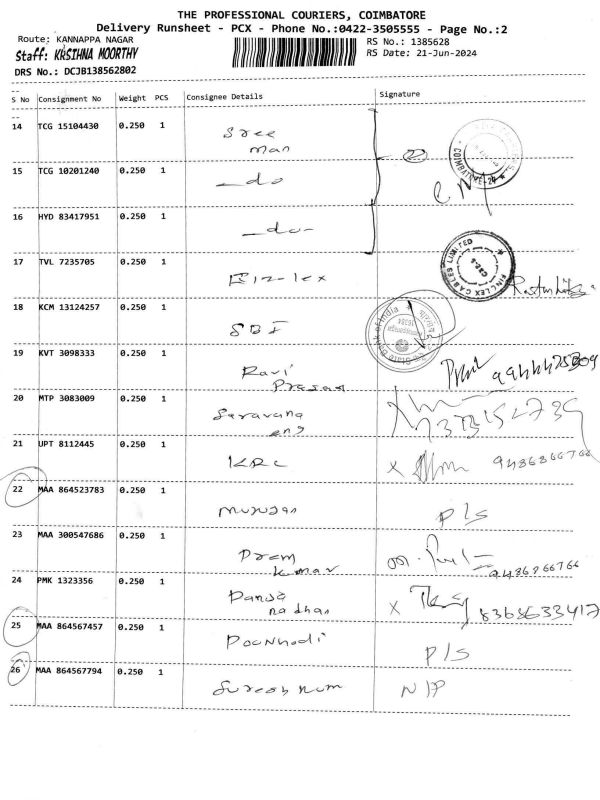 THE PROFESSIONAL COURIERS, COIMBATORE
Delivery Runsheet - PCX - Phone No.:0422-3505555 - Page No.:2
Route: KANNAPPA NAGAR
RS No.: 1385628
Staff: KRSIHNA MOORTHY
RS Date: 21-Jun-2024
DRS No.: DCJB138562802
S No Consignment No Weight PCS Consignee Details Signature
14 TCG 15104430 0.250 1 Sree
man
15 TCG 10201240 0.250 1 -do
16 HYD 83417951 0.250 1 -do-
17 TVL 7235705 0.250 1 Fin-lex
FINLEX CABLES LIMITED
18 KCM 13124257 0.250 1 SBI
State Bank of India
19 KVT 3098333 0.250 1 Ravi
Prasad
20 MTP 3083009 0.250 1 Saravana
eng
21 UPT 8112445 0.250 1 KRC x 9486866766
22 MAA 864523783 0.250 1 murugan P/S
23 MAA 300547686 0.250 1 Prem
kumar 9486866766
24 PMK 1323356 0.250 1 x 8368633417
nadhan
25 MAA 864567457 0.250 1 P/S
26 MAA 864567794 0.250 1 Suresh kum N/P